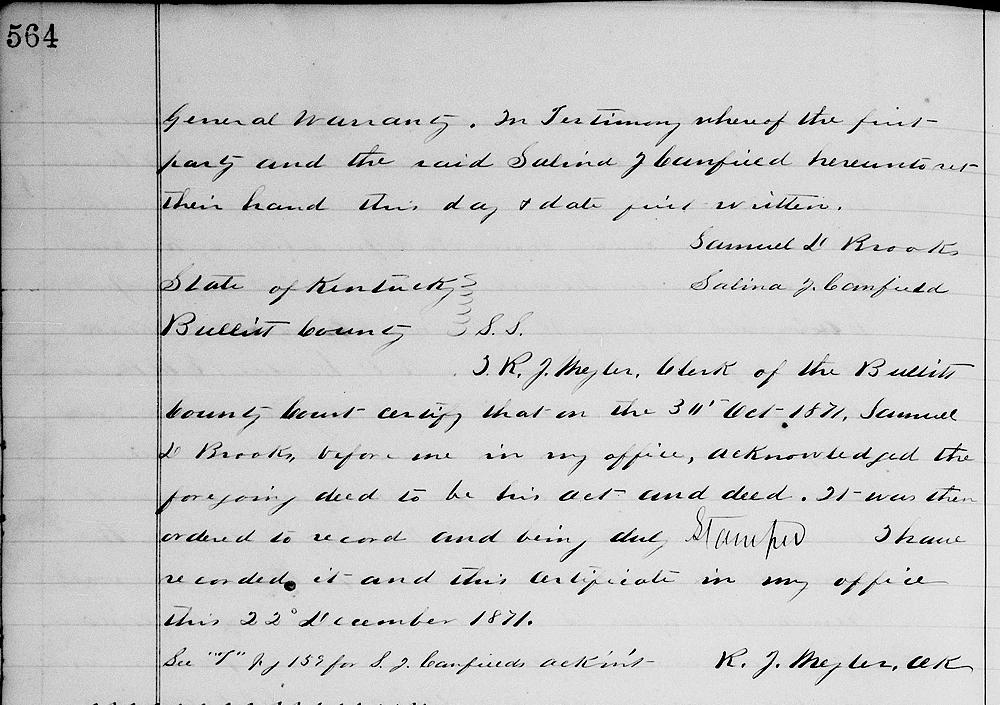 564
General Warranty. In Testimony whereof the first
party and the said Salina J Canfield hereunto set
their hand this day & date first written.
Samuel D Brooks
State of Kentucky
Salina J. Canfield
Bullitt County S.S.
I R. J. Meyler, Clerk of the Bullitt
County Court certify that on the Oct 1871, Samuel
D Brooks, before me in my office, acknowledged the
foregoing deed to be his act and deed. It was then
ordered to record and being duly Stamped I have
recorded it and this certificate in my office
this 22° December 1871.
See "T" pg 159 for S. J. Canfields ack'm't
R. J. Meyler, Clk